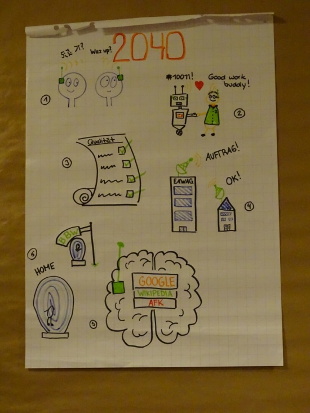 2040
Was up?
#10011!
Good work,
buddy!
1
2
Checklist
3
AUFTRAG!
OK!
BAWAG
4
6
HOME
5
GOOGLE
WIKIPEDIA
APK